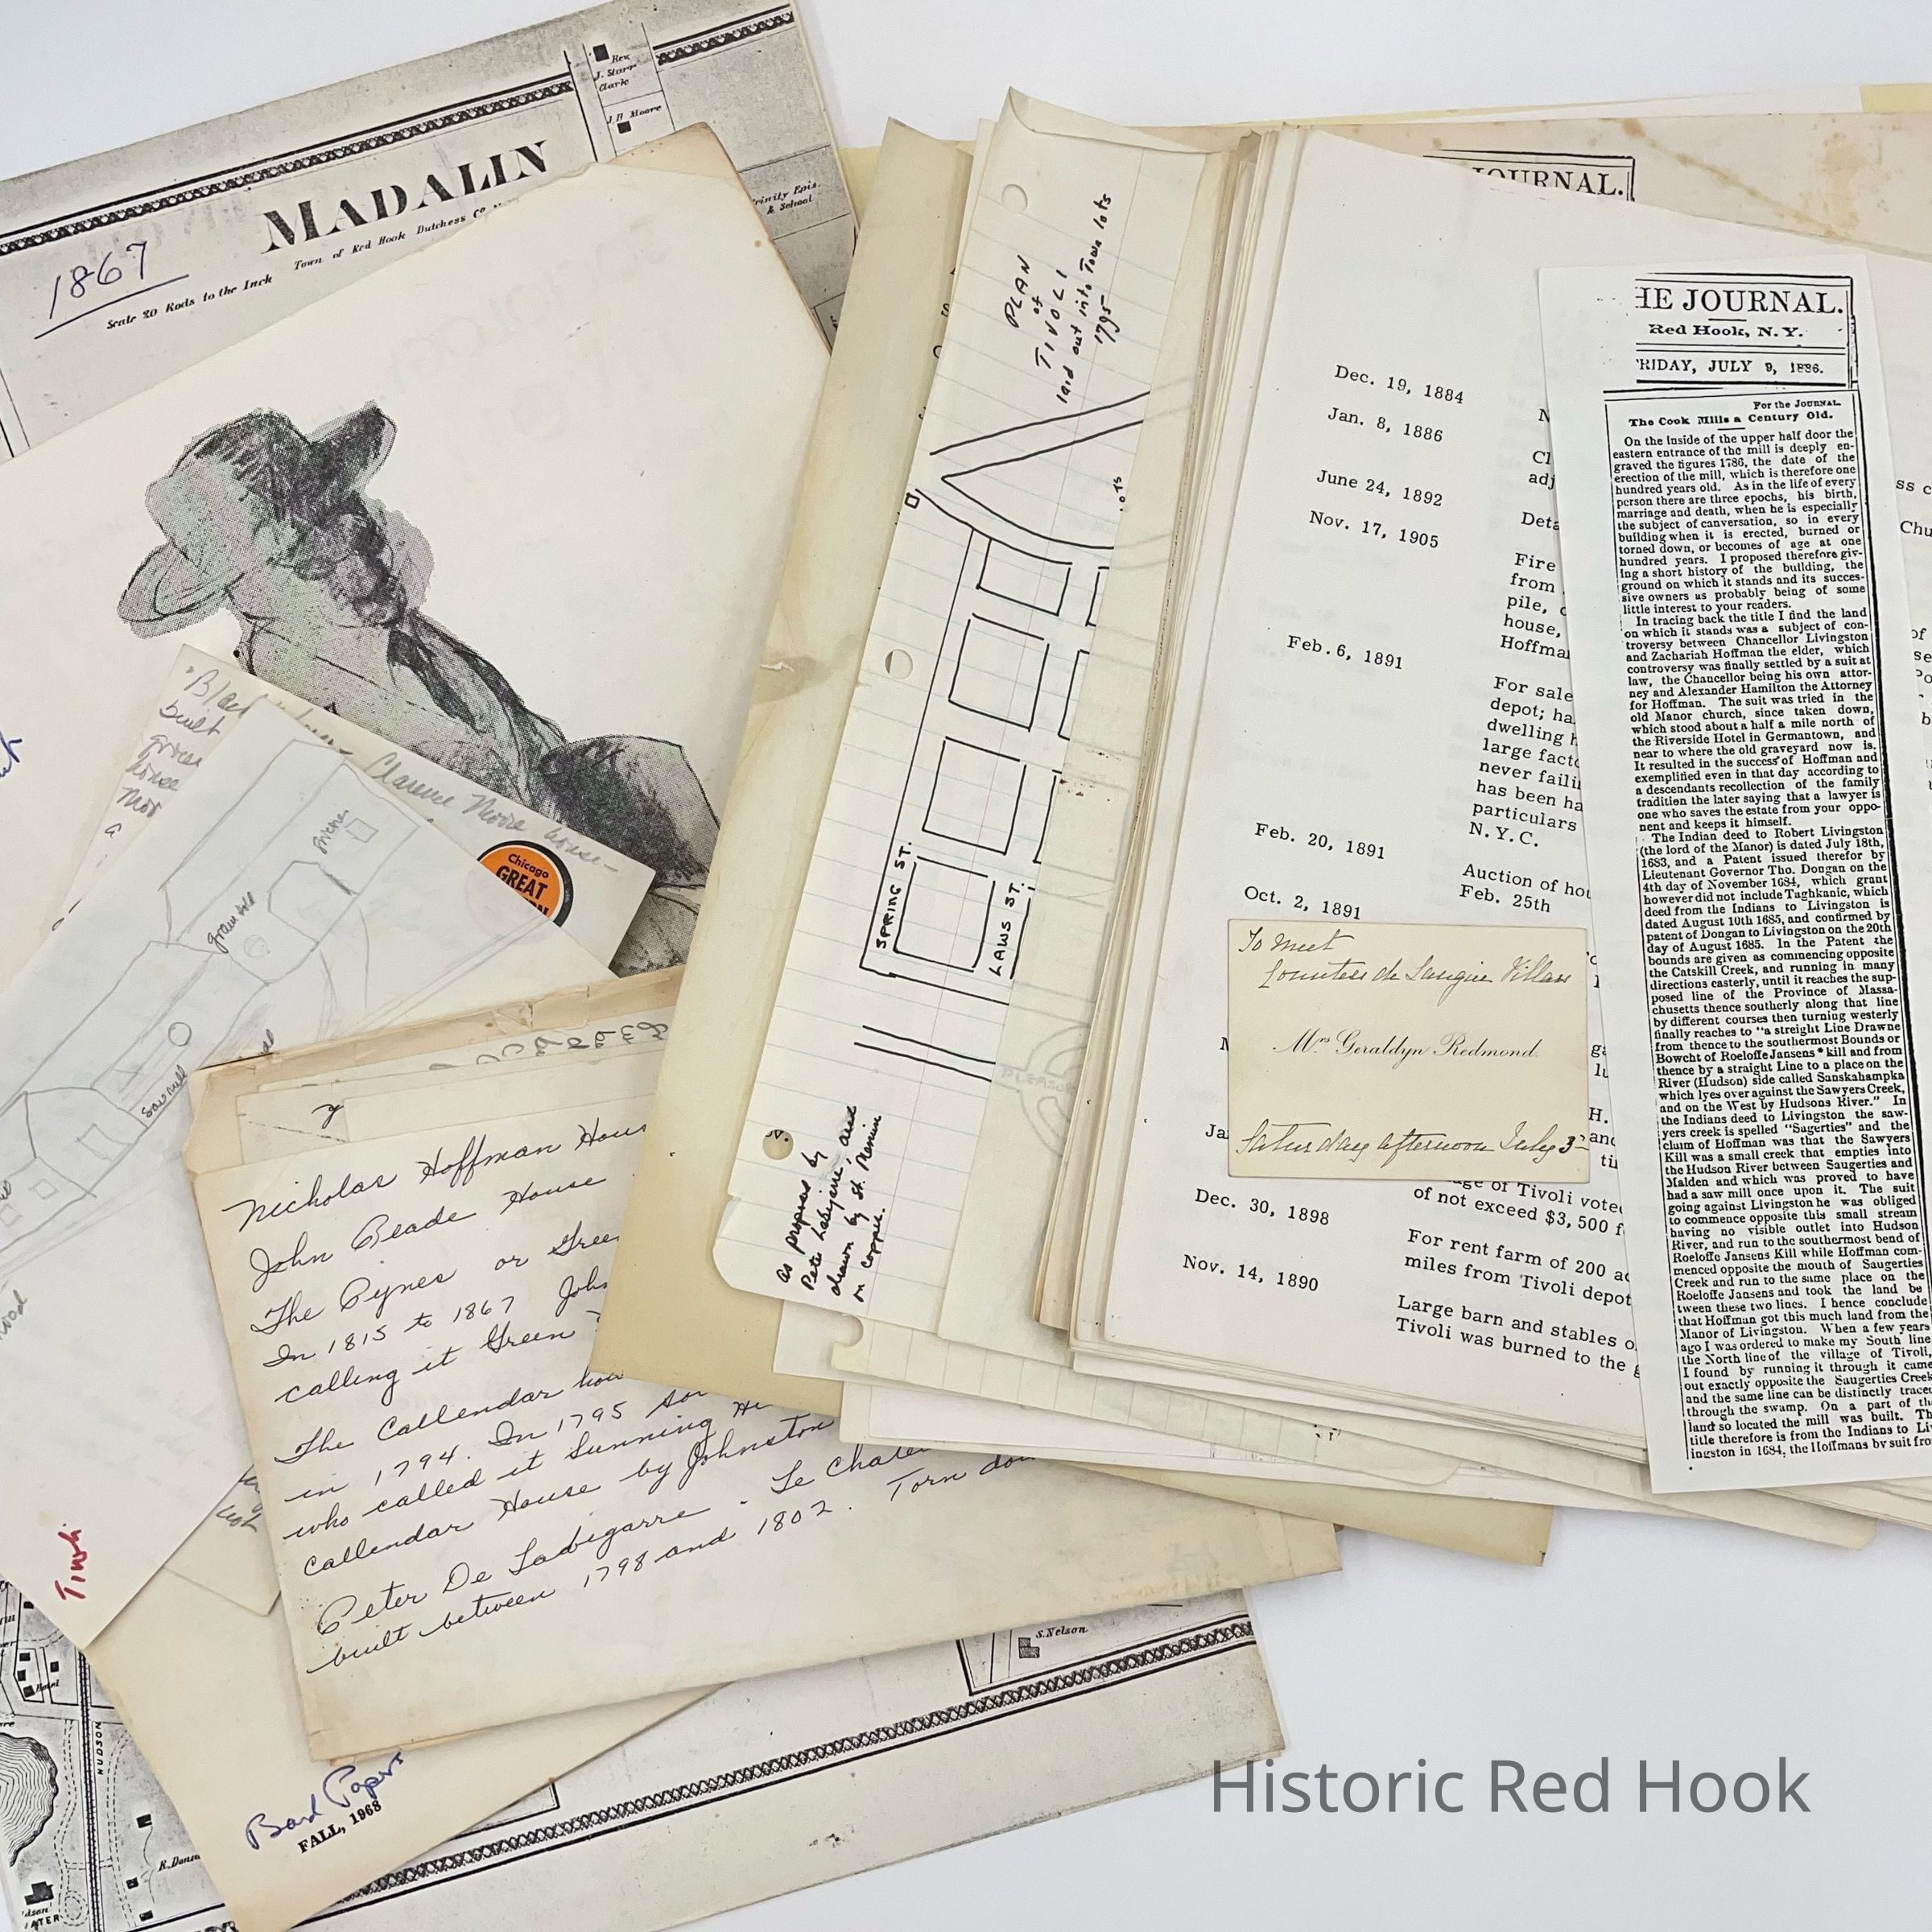 MADALIN
Town of Red Hook Dutchess Co.
Scale 20 Rods to the Inch
1867
Rev.
J. Starr
Clarke
J. H. Moore
Trinity Epis.
& School
"Black
built
house
Clarence Moore house -
Chicago
GREAT
kitchen
saw mill
Tivoli
Nicholas Hoffman Hous
John Reade House
The Pynes or Green
In 1815 to 1867 John
calling it Green
The Callendar hou
in 1794. In 1795 sol
who called it Sunning Hi
Callendar House by Johnston
Peter De Labigarre - Le Chate
built between 1798 and 1802. Torn dow
S. Nelson
Bard Papers
FALL, 1968
HUDSON
Hotel
R. Dona
PLAN
of
TIVOLI
laid out into Town lots
1795
SPRING ST.
LAWS ST.
PLEASU
as proposed by
Pete Labigarre, and
drawn by St. Memin
in copper.
Dec. 19, 1884
Jan. 8, 1886
Cl
adj
June 24, 1892
Deta
Nov. 17, 1905
Fire
from
pile,
house,
Hoffma
Feb. 6, 1891
For sale
depot; ha
dwelling h
large facto
never faili
has been ha
particulars
N.Y.C.
Feb. 20, 1891
Auction of hou
Feb. 25th
Oct. 2, 1891
To meet
Countess de Laugier Villars
Mrs Geraldyn Redmond.
Saturday afternoon July 3rd
age of Tivoli voted
of not exceed $3,500 f
Dec. 30, 1898
For rent farm of 200 ac
miles from Tivoli depot
Nov. 14, 1890
Large barn and stables o
Tivoli was burned to the g
JOURNAL.
HE JOURNAL.
Red Hook, N.Y.
FRIDAY, JULY 9, 1886.
For the JOURNAL.
The Cook Mills a Century Old.
On the inside of the upper half door the
eastern entrance of the mill is deeply en-
graved the figures 1786, the date of the
erection of the mill, which is therefore one
hundred years old. As in the life of every
person there are three epochs, his birth,
marriage and death, when he is especially
the subject of canversation, so in every
building when it is erected, burned or
torned down, or becomes of age at one
hundred years. I proposed therefore giv-
ing a short history of the building, the
ground on which it stands and its succes-
sive owners as probably being of some
little interest to your readers.
In tracing back the title I find the land
on which it stands was a subject of con-
troversy between Chancellor Livingston
and Zachariah Hoffman the elder, which
controversy was finally settled by a suit at
law, the Chancellor being his own attor-
ney and Alexander Hamilton the Attorney
for Hoffman. The suit was tried in the
old Manor church, since taken down,
which stood about a half a mile north of
the Riverside Hotel in Germantown, and
near to where the old graveyard now is.
It resulted in the success of Hoffman and
exemplified even in that day according to
a descendants recollection of the family
tradition the later saying that a lawyer is
one who saves the estate from your oppo-
nent and keeps it himself.
The Indian deed to Robert Livingston
(the lord of the Manor) is dated July 18th,
1683, and a Patent issued therefor by
Lieutenant Governor Tho. Dongan on the
4th day of November 1684, which grant
however did not include Taghkanic, which
deed from the Indians to Livingston is
dated August 10th 1685, and confirmed by
patent of Dongan to Livingston on the 20th
day of August 1685. In the Patent the
bounds are given as commencing opposite
the Catskill Creek, and running in many
directions easterly, until it reaches the sup-
posed line of the Province of Massa-
chusetts thence southerly along that line
by different courses then turning westerly
finally reaches to "a streight Line Drawne
from thence to the southermost Bounds or
Bowcht of Roeloffe Jansens kill and from
thence by a straight Line to a place on the
River (Hudson) side called Sanskahampka
which lyes over against the Sawyers Creek,
and on the West by Hudsons River." In
the Indians deed to Livingston the saw-
yers creek is spelled "Sugerties" and the
clum of Hoffman was that the Sawyers
Kill was a small creek that empties into
the Hudson River between Saugerties and
Malden and which was proved to have
had a saw mill once upon it. The suit
going against Livingston he was obliged
to commence opposite this small stream
having no visible outlet into Hudson
River, and run to the southermost bend of
Roeloffe Jansens Kill while Hoffman com-
menced opposite the mouth of Saugerties
Creek and run to the same place on the
Roeloffe Jansens and took the land be
tween these two lines. I hence conclude
that Hoffman got this much land from the
Manor of Livingston. When a few years
ago I was ordered to make my South line
the North line of the village of Tivoli,
I found by running it through it came
out exactly opposite the Saugerties Creek
and the same line can be distinctly trace
through the swamp. On a part of th
land so located the mill was built. Th
title therefore is from the Indians to Liv
ingston in 1684, the Hoffmans by suit fro
Historic Red Hook